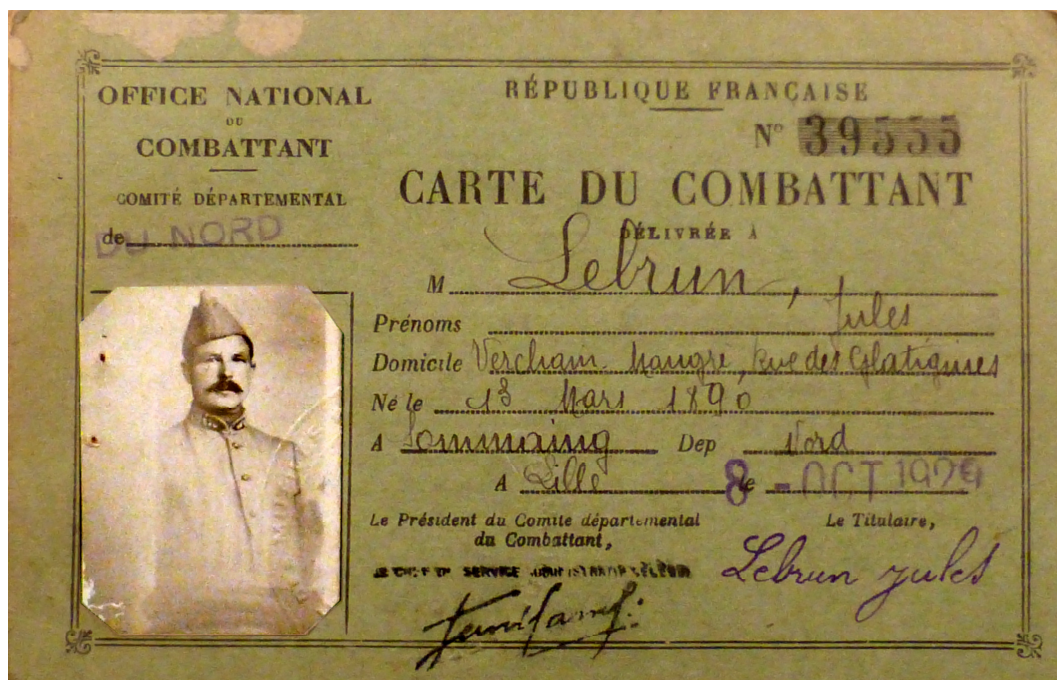 OFFICE NATIONAL
DU
COMBATTANT
COMITÉ DÉPARTEMENTAL
de DU NORD
RÉPUBLIQUE FRANÇAISE
N° 39555
CARTE DU COMBATTANT
DÉLIVRÉE À
M Lebrun,
Prénoms Jules
Domicile Verchain-Maugré, Rue des Glatignies
Né le 13 Mars 1890
A Sommaing Dep Nord
A Lille le 8 - OCT 1929
Le Président du Comité départemental
du Combattant,
Le Titulaire,
LE CHEF DU SERVICE ADMINISTRATIF
Lebrun Jules